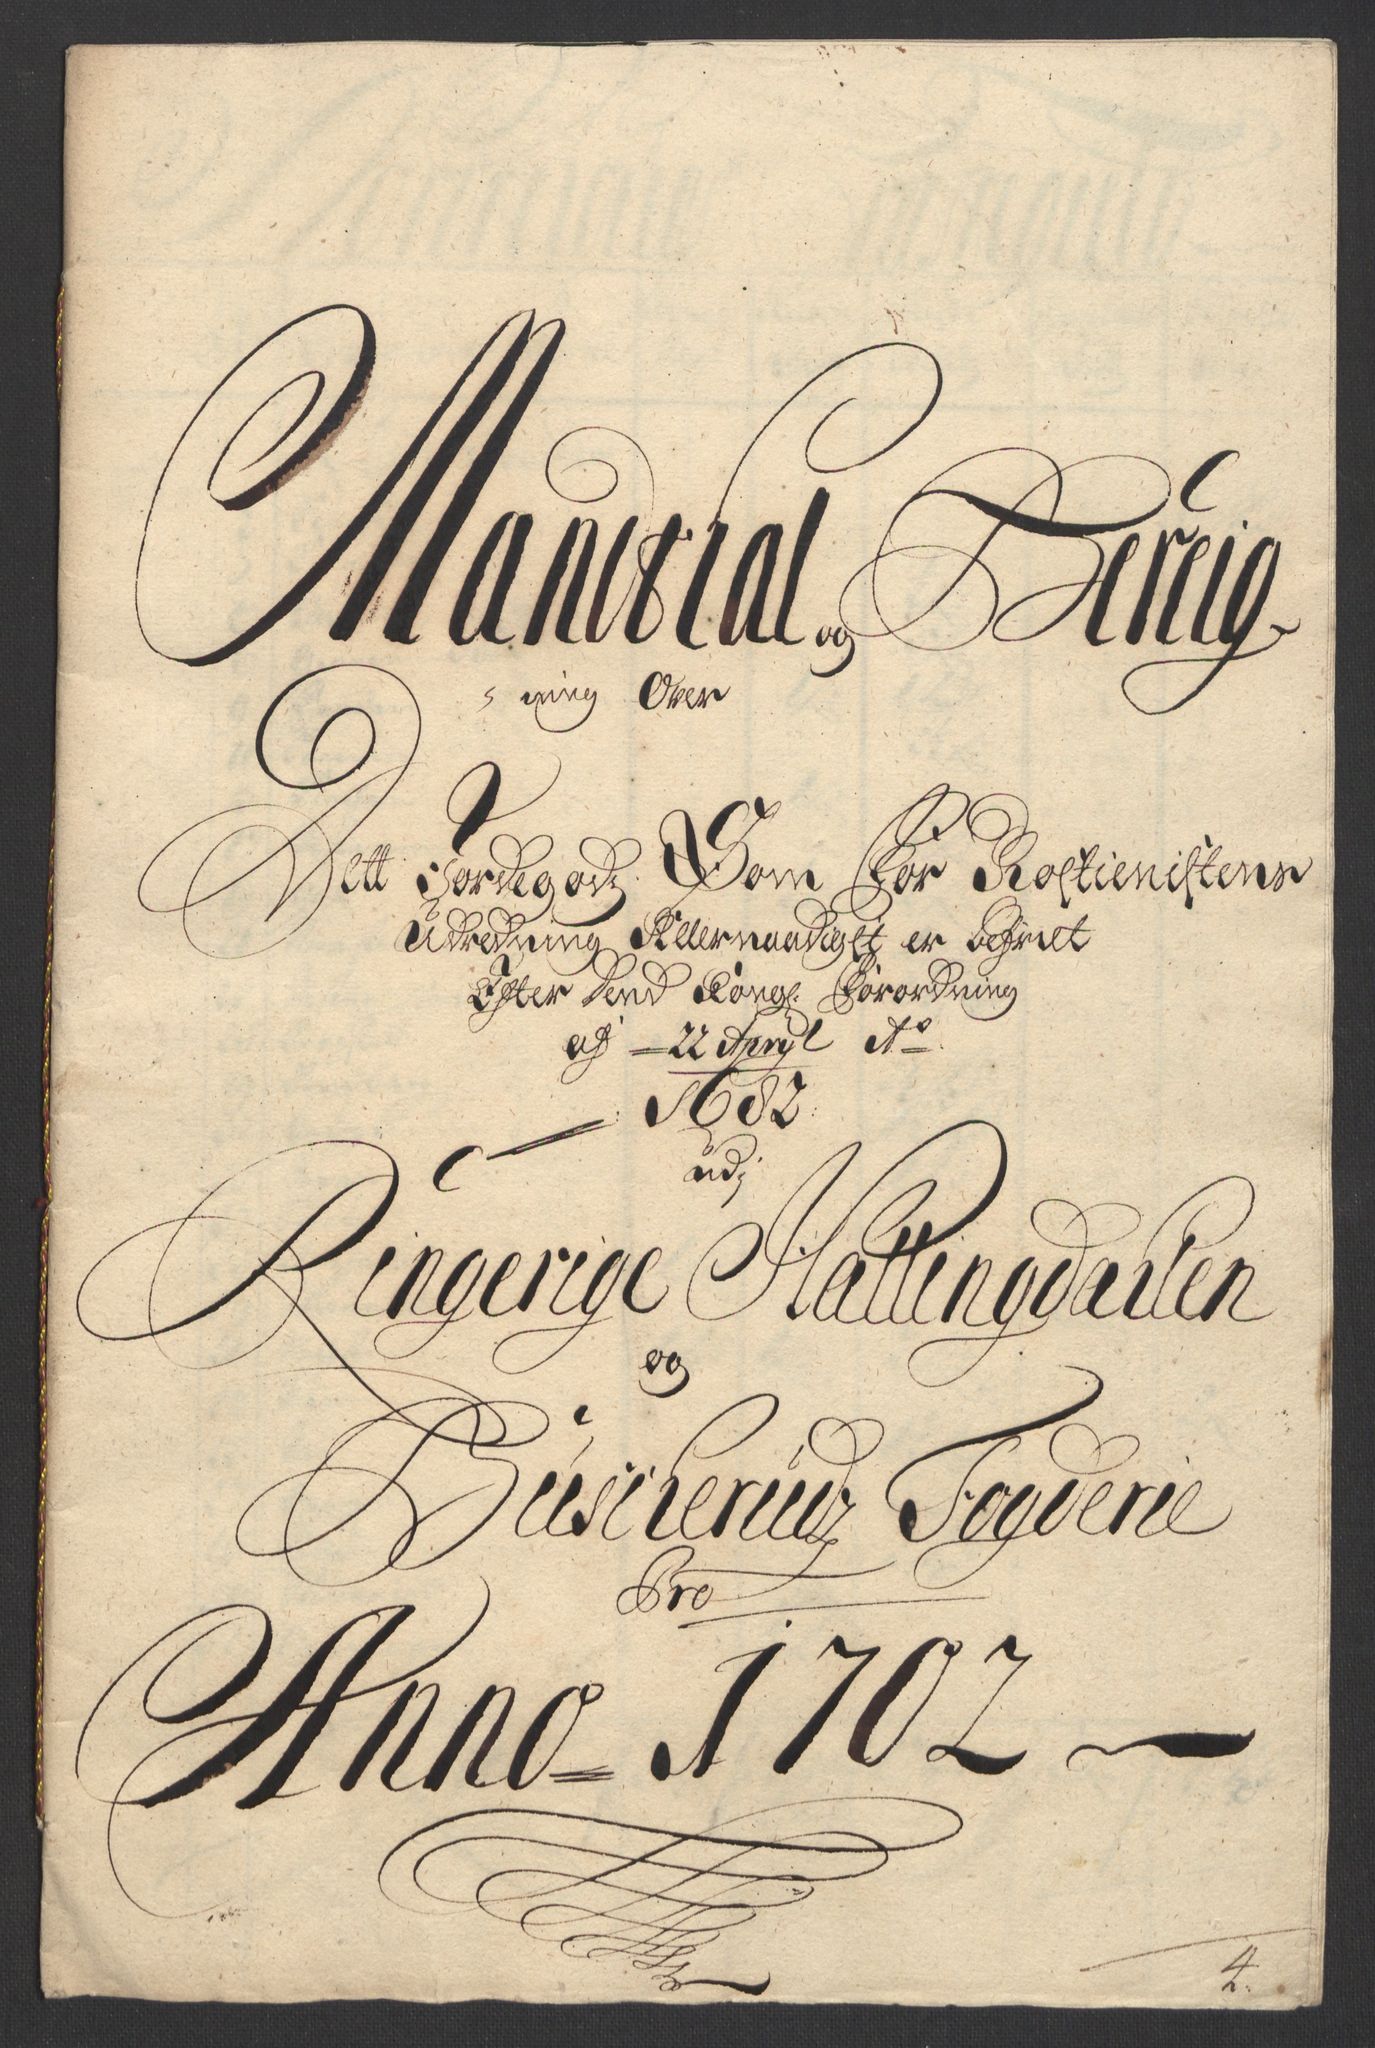 Mandtal og Bereig-
ning Over
Dett Jordegodz Som for Rostienistens
Udredning Allernaadigst er befriet
Efter dend Kongl. Forordning
af 22 Apryl Ao
1682
udj
Ringerige Hallingdallen
og
Buscherudz Fogderie
Pro
Anno 1702
4.